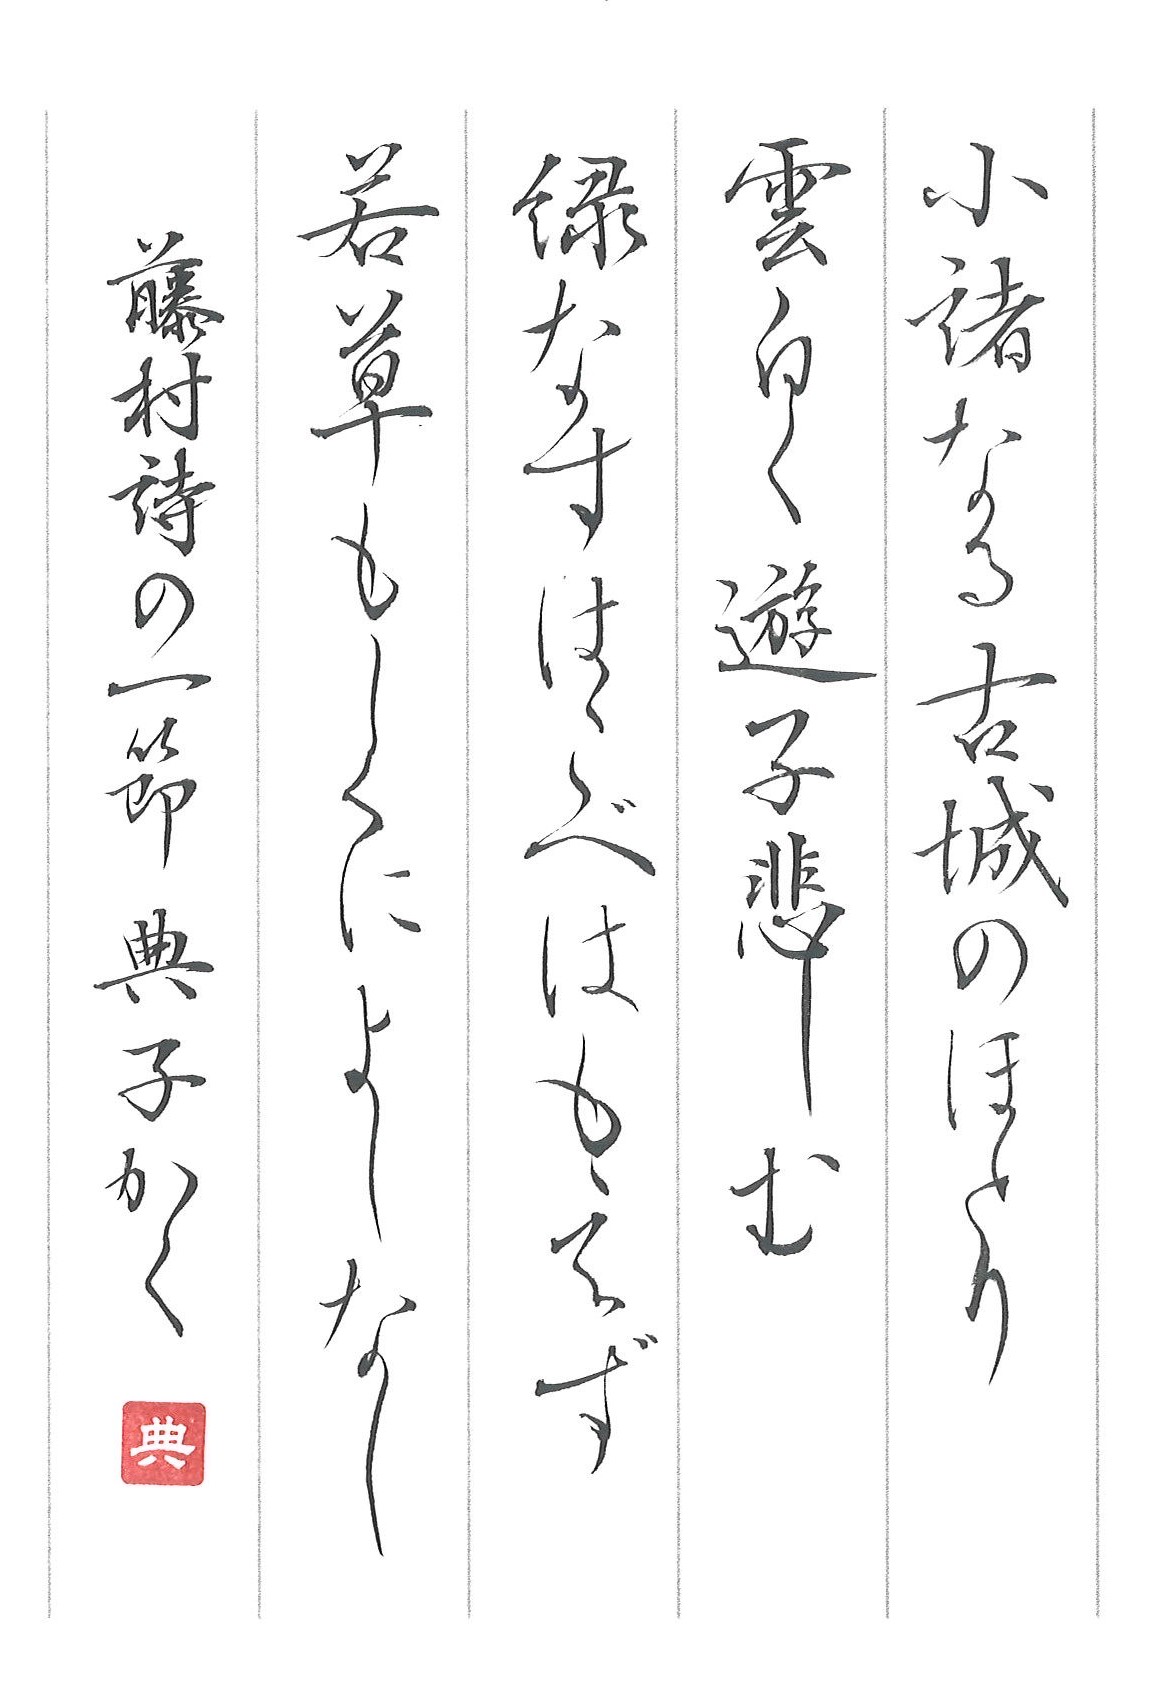 小諸なる古城のほとり
雲白く遊子悲しむ
緑なすはこべはもえず
若草もしくによしなし
藤村詩の一節 典子かく
典